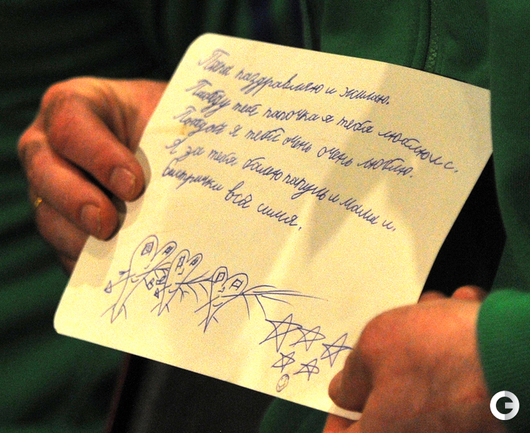 Папа паздравляю и жилаю.
Пабеду тебе папочка я тебя люблю
Папуля я тебя очень очень люблю.
Я за тебя балею папуль и мама и.
систрички вся симя.